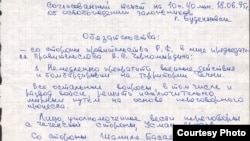 Согласованный текст на 10ч. 40мин. 18.06.95г.
об освобождении заложников
г. Буденновск
Обязательства:
— со стороны правительства Р.Ф. в лице председателя
правительства В.С. Черномырдина:
1. Немедленно прекратить военные действия
и бомбардировки на территории Чечни.
Все остальные вопросы, в том числе и
вопрос решать исключительно
мирным путем на основе переговорного
процесса.
Лицо уполномоченное вести переговоры
с чеченской стороны
Со стороны Шамиля Басаева
Courtesy Photo